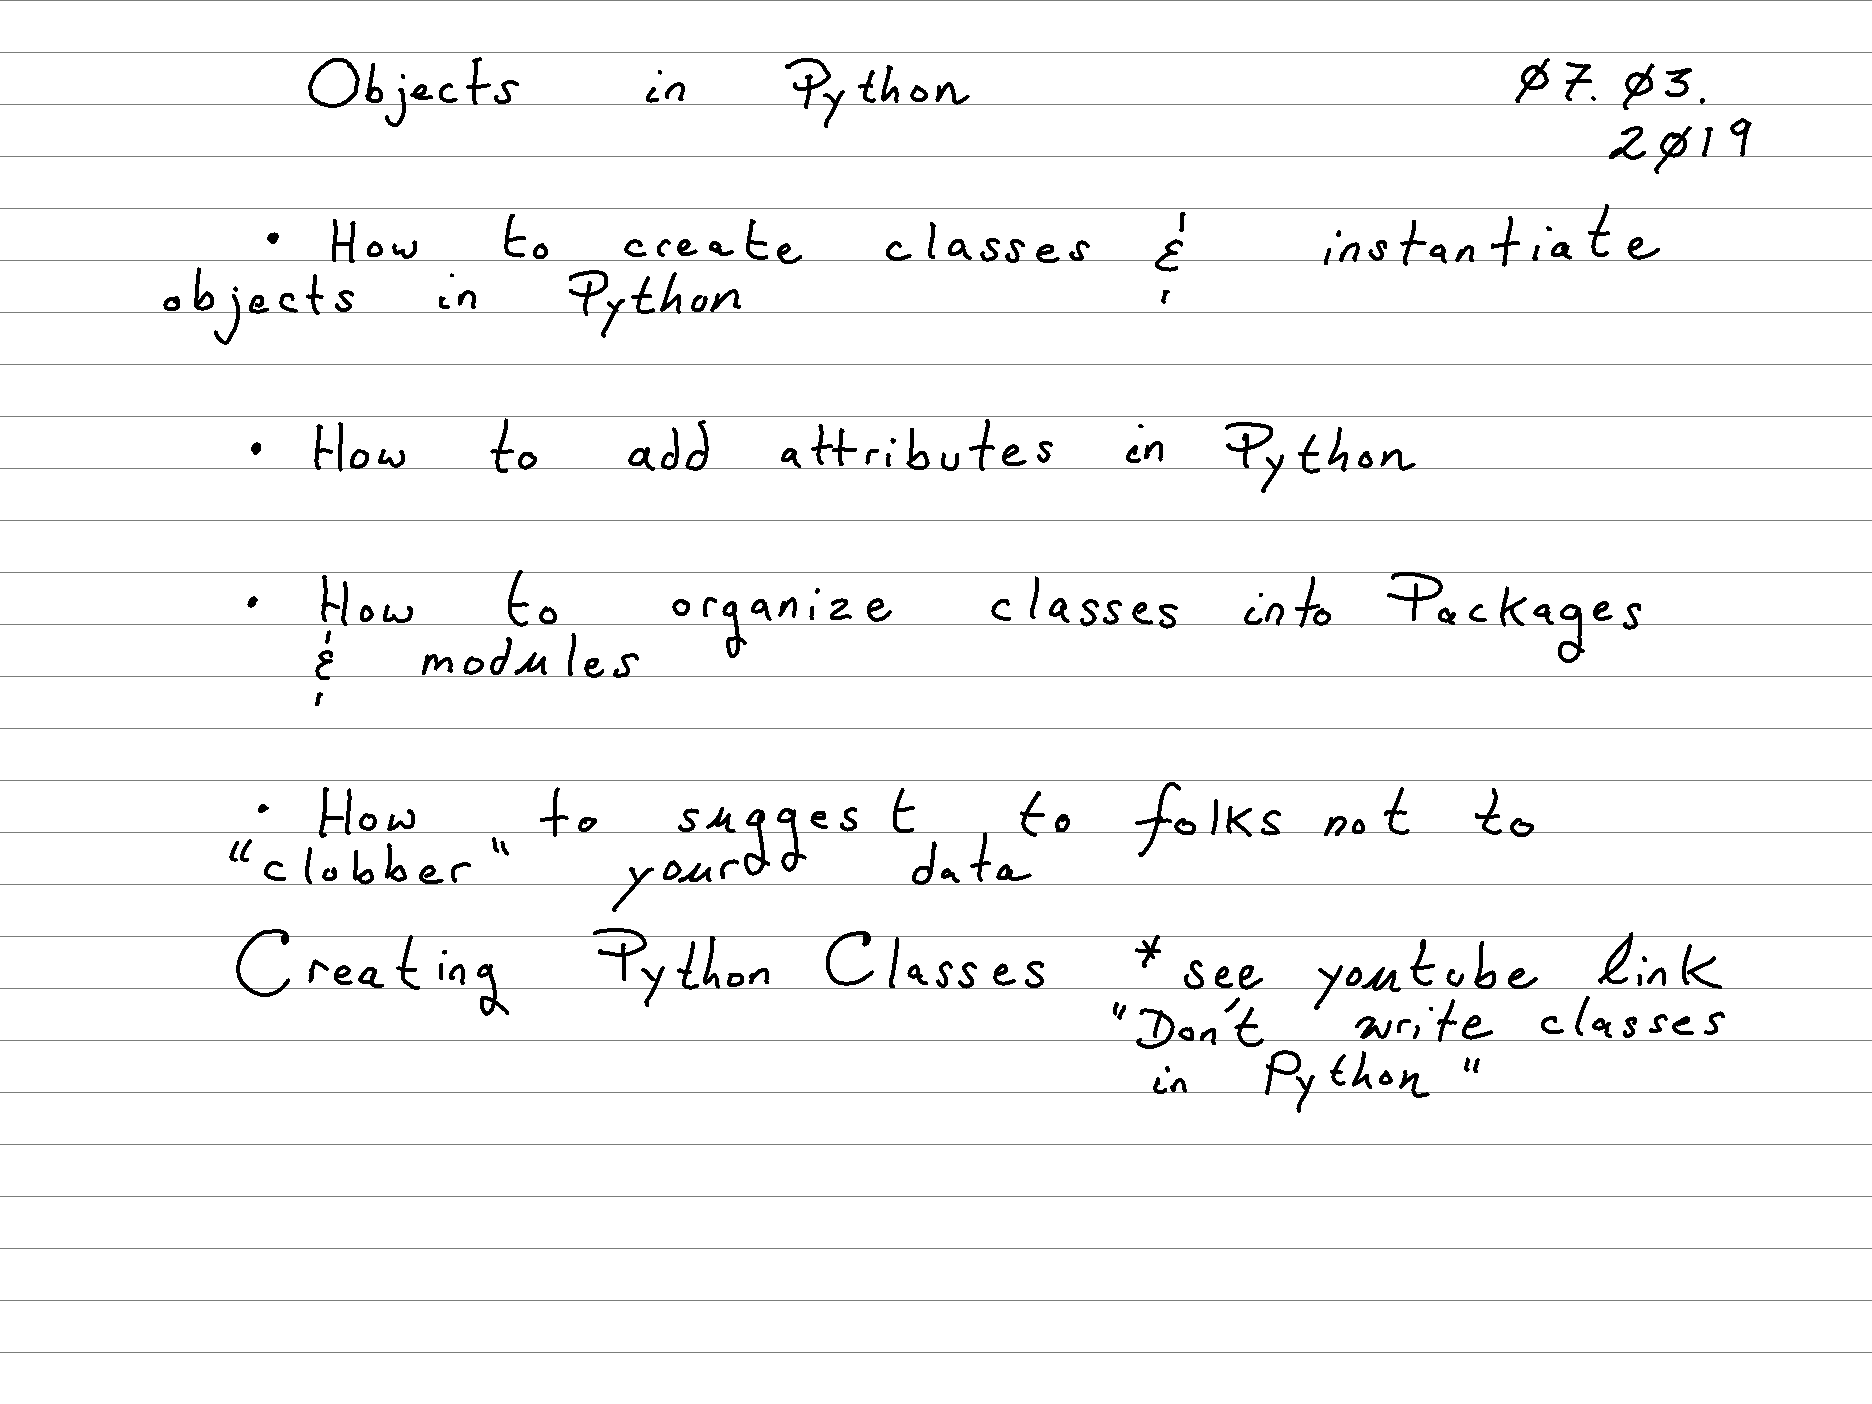 Objects in Python 07.03.
2019
• How to create classes & instantiate
objects in Python
• How to add attributes in Python
• How to organize classes into Packages
& modules
• How to suggest to folks not to
"clobber" your data
Creating Python Classes * see youtube link
"Don't write classes
in Python"